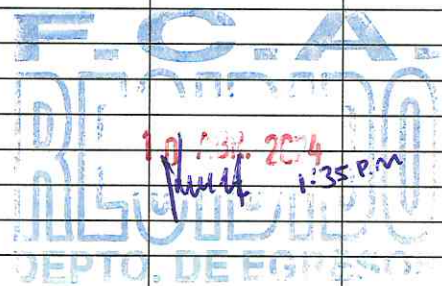 F.C.A.
RECIBIDO
10 ABR. 2024
1:35 P.M
DEPTO. DE EGRESOS